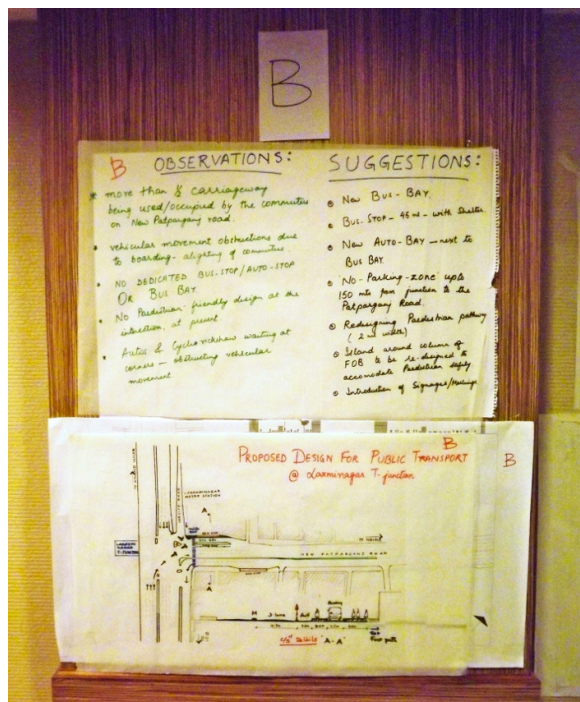 B
B OBSERVATIONS:
more than ½ carriageway
being used/occupied by the commuters
on New Patparganj road.
vehicular movement obstructions due
to boarding- alighting of commuters.
NO DEDICATED BUS-STOP/AUTO-STOP
OR BUS BAY
No Paedestrian-friendly design at the
intersection, at present
Autos & Cyclerickshaws waiting at
corners - obstructing vehicular
movement
SUGGESTIONS:
New BUS-BAY.
BUS-STOP - 45 mt - with Shelter
New AUTO-BAY - next to
BUS BAY
No-Parking-zone upto
150 mts from junction to the
Patparganj Road.
Redesigning Paedestrian pathway
(2 mt width)
Island around column of
FOB to be re-designed to
accomodate Paedestrian safety
Introduction of Signages/Markings
B
PROPOSED DESIGN FOR PUBLIC TRANSPORT
@ Laxminagar T-junction
B
LAXMINAGAR
METRO STATION
NEW PATPARGANJ ROAD
A
A
'A-A'
Foot path